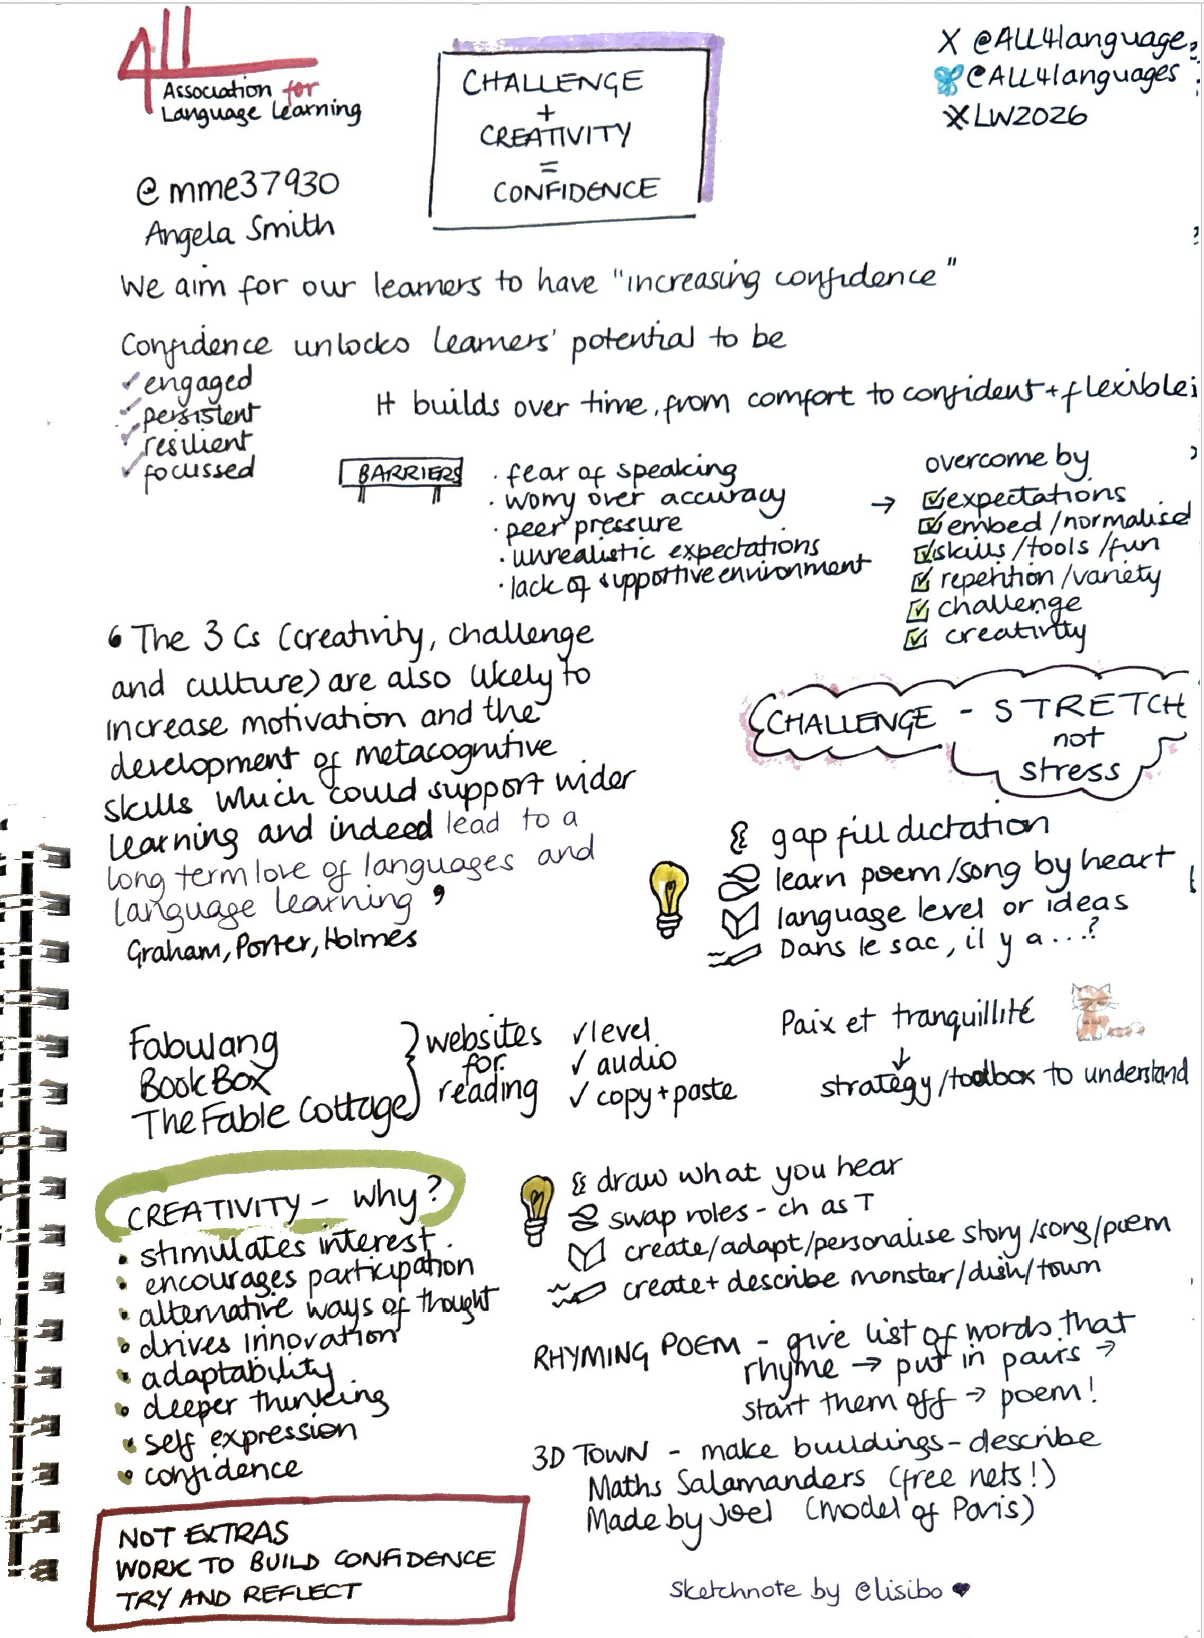 ALL
Association for
Language Learning
CHALLENGE
+
CREATIVITY
=
CONFIDENCE
X @ALL4language
@ALL4languages
XLW2026
@mme37930
Angela Smith
We aim for our learners to have "increasing confidence"
Confidence unlocks learners' potential to be
✓ engaged
✓ persistent
✓ resilient
✓ focussed
It builds over time, from comfort to confident + flexible
BARRIERS
· fear of speaking
· worry over accuracy
· peer pressure
· unrealistic expectations
· lack of supportive environment
→
overcome by
☑ expectations
☑ embed/normalised
☑ skills/tools/fun
☑ repetition/variety
☑ challenge
☑ creativity
‘ The 3 Cs (creativity, challenge
and culture) are also likely to
increase motivation and the
development of metacognitive
skills which could support wider
learning and indeed lead to a
long term love of languages and
language learning ’
Graham, Porter, Holmes
CHALLENGE - STRETCH
not
stress
gap fill dictation
learn poem/song by heart
language level or ideas
Dans le sac, il y a...?
Fabulang
BookBox
The Fable Cottage
websites
for
reading
✓ level
✓ audio
✓ copy + paste
Paix et tranquillité
↓
strategy/toolbox to understand
CREATIVITY - why?
· stimulates interest.
· encourages participation
· alternative ways of thought
· drives innovation
· adaptability
· deeper thinking
· self expression
· confidence
draw what you hear
swap roles - ch as T
create/adapt/personalise story/song/poem
create + describe monster/dish/town
RHYMING POEM - give list of words that
rhyme → put in pairs →
start them off → poem!
3D TOWN - make buildings - describe
Maths Salamanders (free nets!)
Made by Joel (model of Paris)
NOT EXTRAS
WORK TO BUILD CONFIDENCE
TRY AND REFLECT
sketchnote by @lisibo ♥